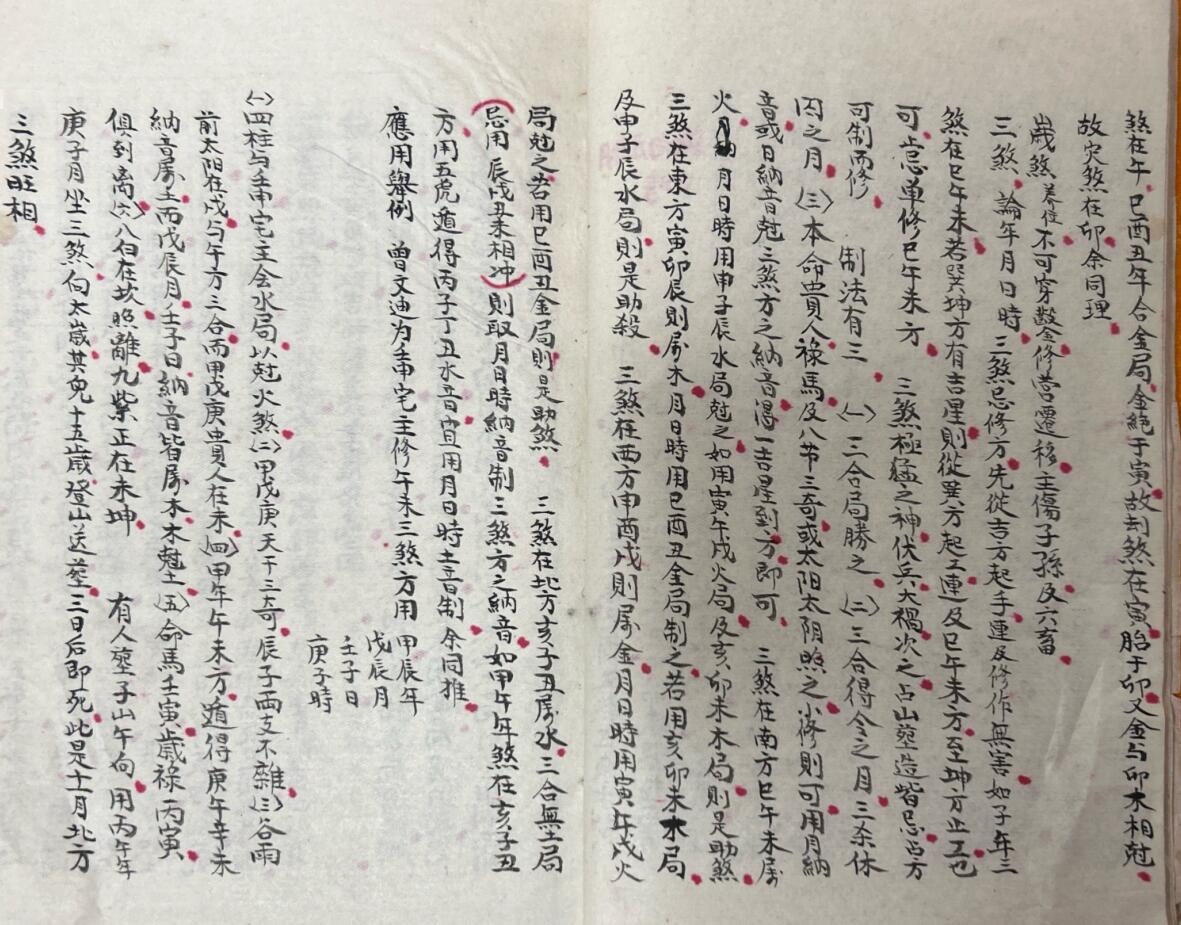 煞在午巳酉丑年合金局金絕于寅故刦煞在寅胎于卯又金与卯木相尅
故災煞在卯余同理
歲煞養位不可穿鑿修营遷移主傷子孫及六畜
三煞論年月日時三煞忌修方先從吉方起手連及修作無害如子年三
煞在巳午未若巽坤方有吉星則從巽方起工連及巳午未方至坤方止工也
可忌单修巳午未方 三煞極猛之神伏兵大禍次之占山塟造皆忌占方
可制而修 制法有三 (一)三合局勝之(二)三合得令之月三杀休
囚之月(三)本命貴人祿馬及八节三奇或太阳太阴照之小修則可用月納
音或日納音尅三煞方之納音得一吉星到方即可 三煞在南方巳午未屬
火 月日時用申子辰水局尅之如用寅午戌火局及亥卯未木局則是助煞
三煞在東方寅卯辰則屬木月日時用巳酉丑金局制之若用亥卯未木局
及申子辰水局則是助殺 三煞在西方申酉戌則屬金月日時用寅午戌火
局尅之若用巳酉丑金局則是助煞 三煞在北方亥子丑屬水三合無土局
忌用辰戌丑未相冲則取月日時納音制三煞方之納音如甲午年煞在亥子丑
方用五虎遁得丙子丁丑水音宜用月日時土音制余同推
應用舉例 曾文迪为壬申宅主修午未三煞方用甲辰年
戊辰月
壬子日
庚子時
(一)四柱与壬申宅主会水局以尅火煞(二)甲戊庚天干三奇辰子两支不雜(三)谷雨
前太阳在戌与午方三合而甲戊庚貴人在未(四)甲年午未方遁得庚午辛未
納音屬土而戊辰月壬子日納音皆屬木木尅土(五)命馬壬寅歲祿丙寅
俱到离(六)八白在坎照離九紫正在未坤 有人塟子山午向用丙午年
庚子月坐三煞向太歲其兒十五歲登山送塟三日后即死此是十一月北方
三煞旺相